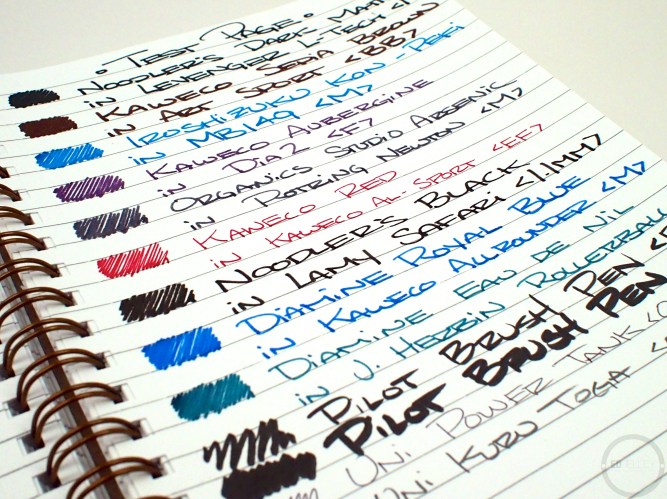 • Test Page •
Noodler's Dark
in Levenger L-Tech
Kaweco Sepia Brown
in Art Sport <BB>
Iroshizuku Kon-Peki
in MB149 <M>
Kaweco Aubergine
in Dia2 <F>
Organics Studio Arsenic
in Rotring Newton <M>
Kaweco Red
in Kaweco Al-Sport <EF>
Noodler's Black
in Lamy Safari <1.1mm>
Diamine Royal Blue
in Kaweco Allrounder <M>
Diamine Eau de Nil
in J. Herbin Rollerball
Pilot Brush Pen
Pilot Brush Pen
Uni Power Tank
Uni Kuru Toga